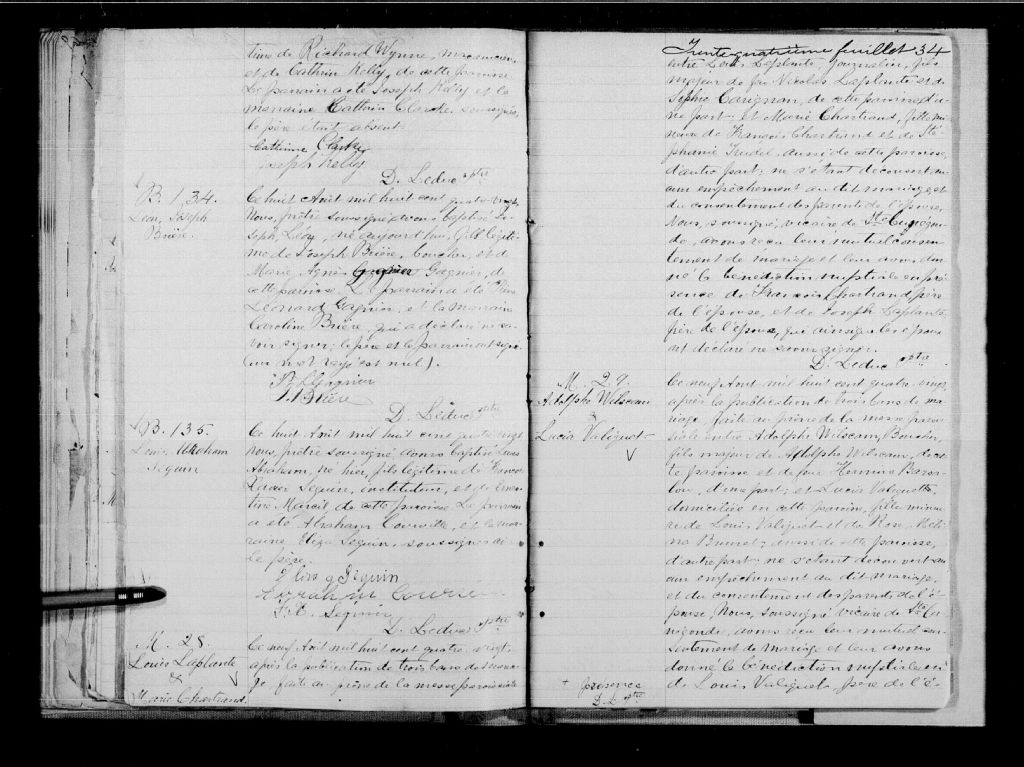 time de Richard Wynne,
et de Cathrin Kelly, de cette paroisse
Le parrain a été Joseph Kelly et la
marraine Cathrin Clarke soussignés,
le père était absent.
Catherine Clarke
Joseph Kelly
D. Leduc ptre
B. 134.
Léon, Joseph
Brière.
Ce huit Août mil huit cent quatre-vingt,
Nous, prêtre soussigné avons baptisé Jo-
seph, Léon, né aujourd'hui, fils légiti-
me de Joseph Brière, boucher, et de
Marie Agnès Gagnier Gagnier, de
cette paroisse. Le parrain a été
Léonard Gagnier, et la marraine
Caroline Brière, qui a déclaré ne sa-
voir signer; le père et le parrain ont signé
(un mot rayé est nul).
L Gagnier
J. Brière
D. Leduc ptre
B. 135
Louis Abraham
Seguin
Ce huit Août mil huit cent quatre vingt
Nous, prêtre soussigné, avons baptisé Louis
Abraham, né hier, fils légitime de
Xavier Seguin, instituteur, et de
tine Marcil, de cette paroisse. Le parrain
a été Abraham et la mar-
raine Eliza Seguin, soussignés
le père.
Eliza Séguin
F.X. Séguin
D. Leduc ptre
M. 28.
Louis Laplante
&
Marie Chartrand.
Ce neuf Août mil huit cent quatre vingt,
après la publication de trois bans de maria-
ge faite au prône de la messe paroissiale
Trente-quatrième feuillet 34
entre Louis Laplante, journalier, fils
majeur de feu Nicolas Laplante et de
Sophie Carignan, de cette paroisse d'u-
ne part; et Marie Chartrand, fille mi-
neure de François Chartrand et de Sté-
phanie Trudel, aussi de cette paroisse,
d'autre part; ne s'étant découvert au-
cun empêchement au dit mariage et
du consentement des parents de l'épouse,
Nous, soussigné, vicaire de Ste Cunégon-
de, avons reçu leur mutuel consen-
tement de mariage et leur avons don-
né la bénédiction nuptiale en pré-
sence de François Chartrand, père
de l'épouse, et de Joseph Laplante
frère de l'époux, qui ainsi que les époux
ont déclaré ne savoir signer.
D. Leduc ptre
M. 29.
Adolphe Wilscam
&
Lucia Valiquet
Ce neuf Août mil huit cent quatre vingt
après la publication de trois bans de ma-
riage faite au prône de la messe parois-
siale entre Adolphe Wilscam, Boucher,
fils majeur de Adolphe Wilscam, de cet-
te paroisse et de feue Hermine
lou, d'une part; et Lucia Valiquette,
domiciliée en cette paroisse, fille mineu-
re de Louis Valiquet et de Rose Méli-
na Brunet, aussi de cette paroisse,
d'autre part; ne s'étant découvert au-
cun empêchement au dit mariage,
et du consentement des parents de l'é-
pouse, Nous, soussigné vicaire de Ste Cu-
négonde, avons reçu leur mutuel con-
sentement de mariage et leur avons
donné la bénédiction nuptiale en
+ présence
D. L. ptre
de Louis Valiquet père de l'é-